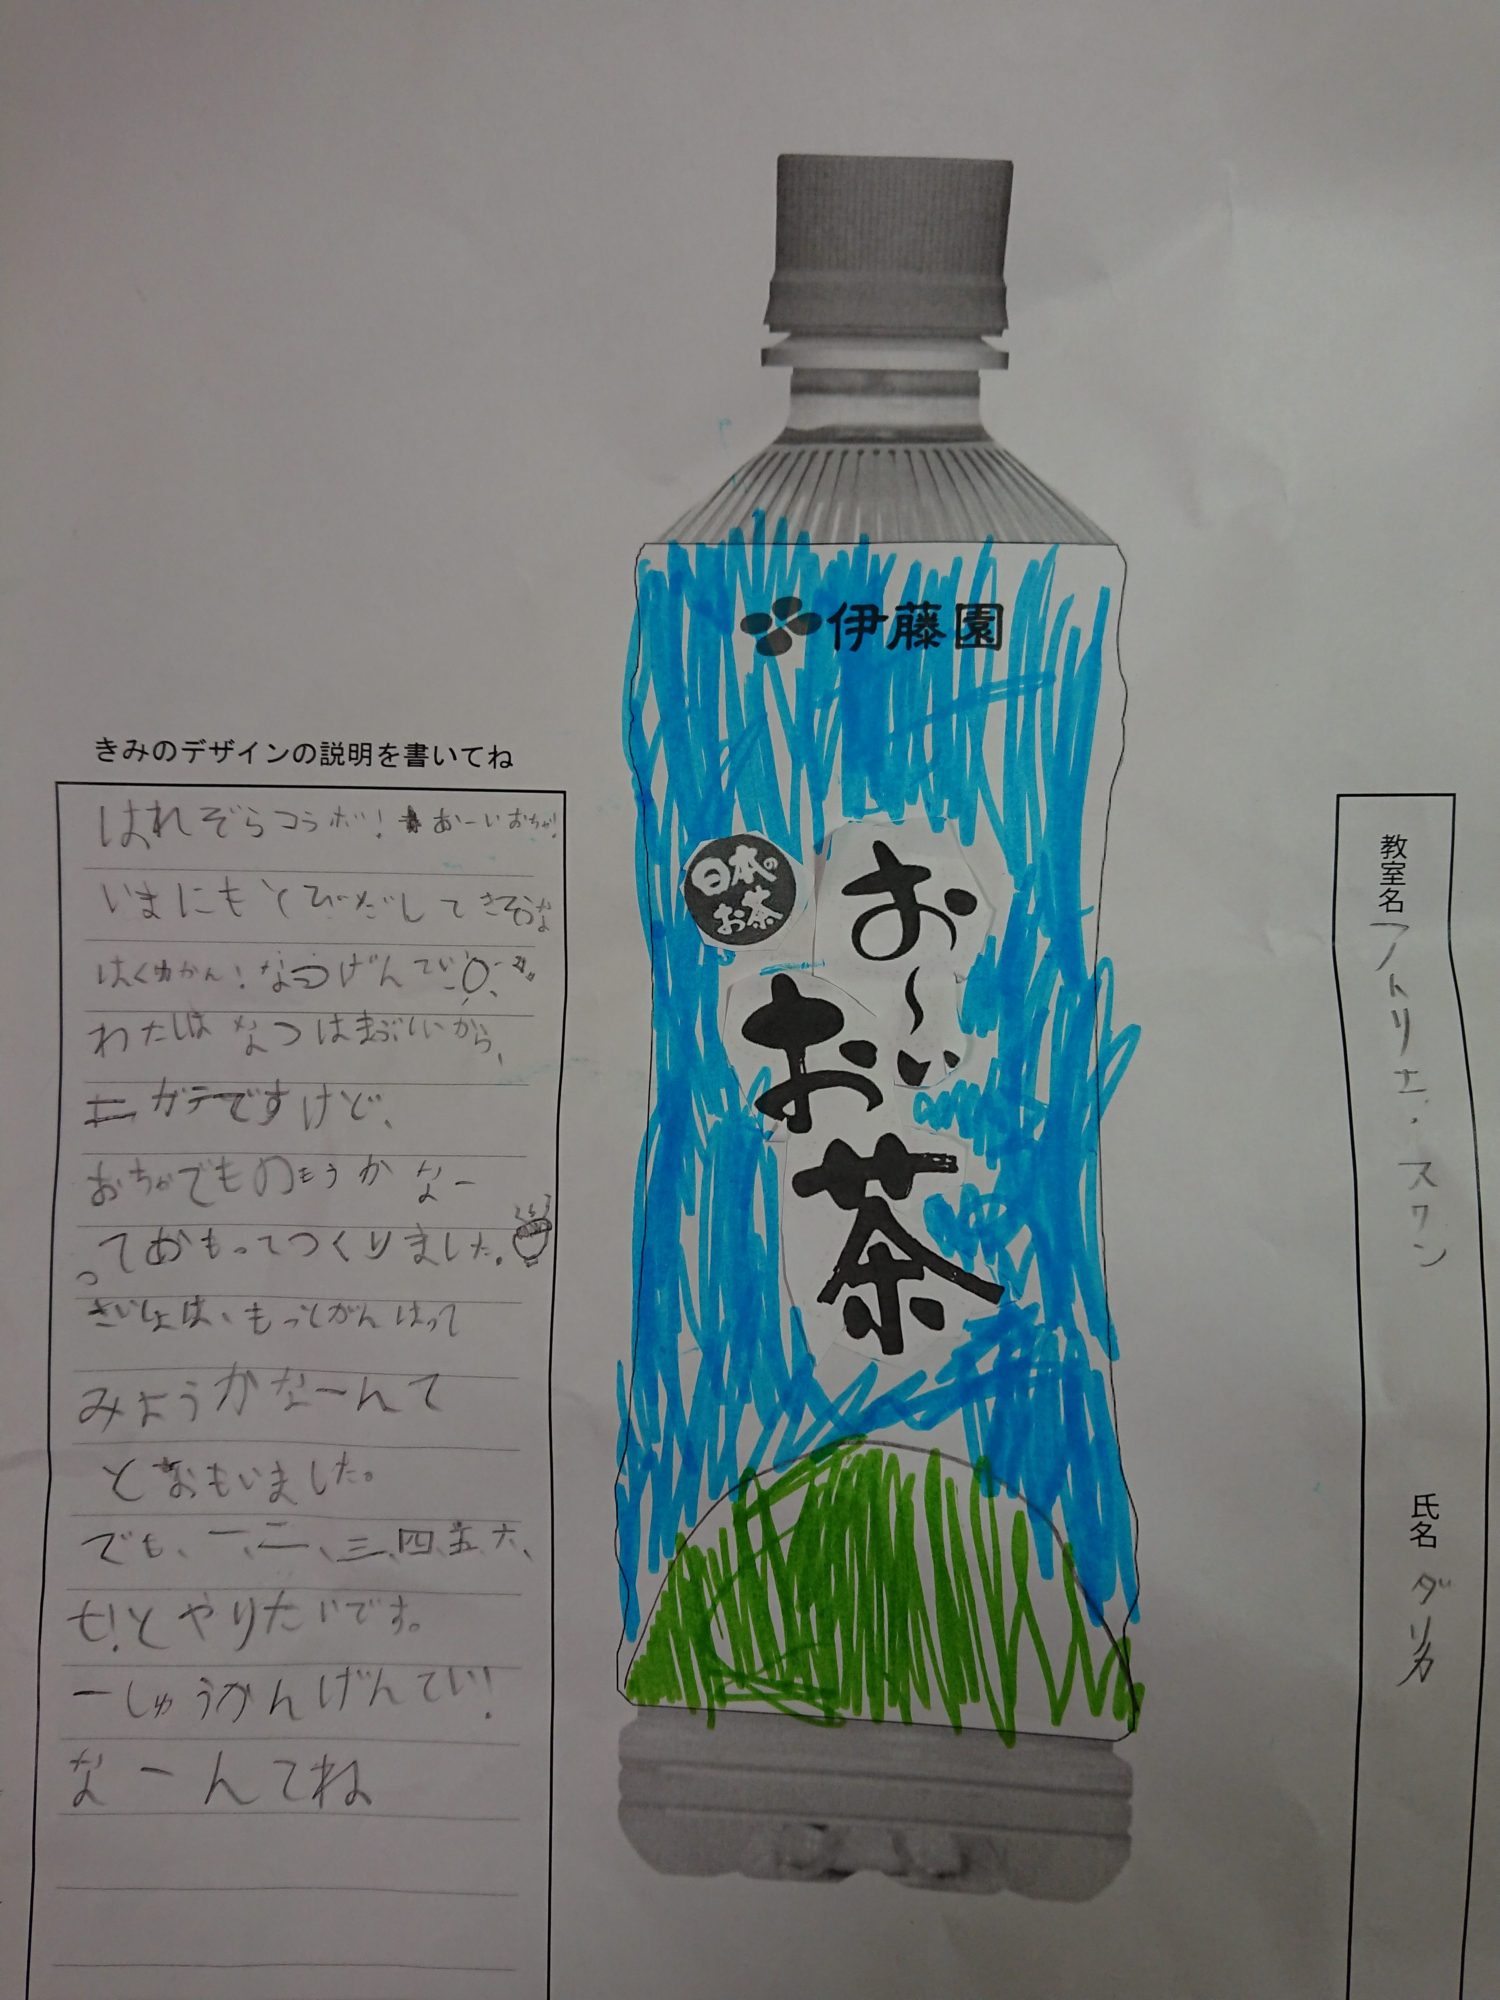 伊藤園
日本の
お茶
お〜い
お茶
きみのデザインの説明を書いてね
はれぞらコラボ!お〜いおちゃ!
いまにもとびだしてきそうな
はくりかん!なつげんてい
わたしはなつはまぶしいから、
ニガテですけど、
おちゃでものもうかなー
っておもってつくりました。
さいしょは、もっとがんばって
みようかなーんて
とおもいました。
でも、一、二、三、四、五、六、
七!とやりたいです。
一しゅうかんげんてい!
なーんてね
教室名 アトリエ・スワン
氏名 ダリカ